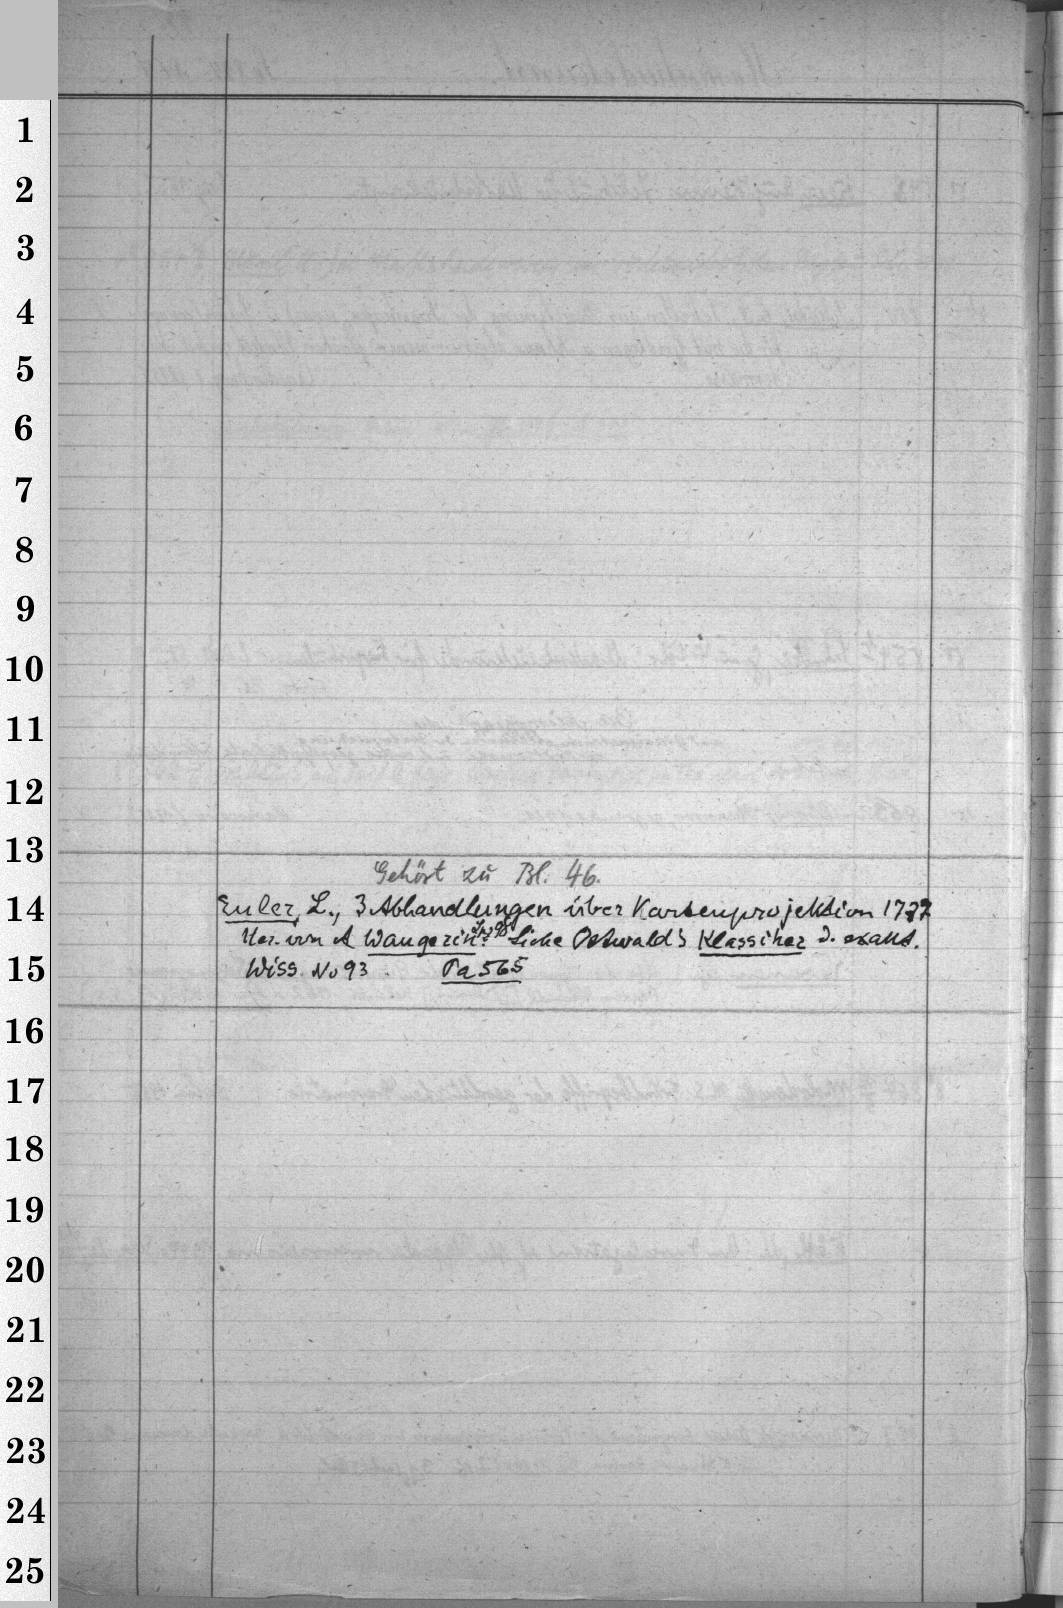 1
2
3
4
5
6
7
8
9
10
11
12
13
Gehört zu Bl. 46.
14
Euler, L., 3 Abhandlungen über Kartenprojektion 1777
Her. von A Wangerin. Siehe Ostwald's Klassiker d. exakt.
15
Wiss. No 93. Pa 565
16
17
18
19
20
21
22
23
24
25